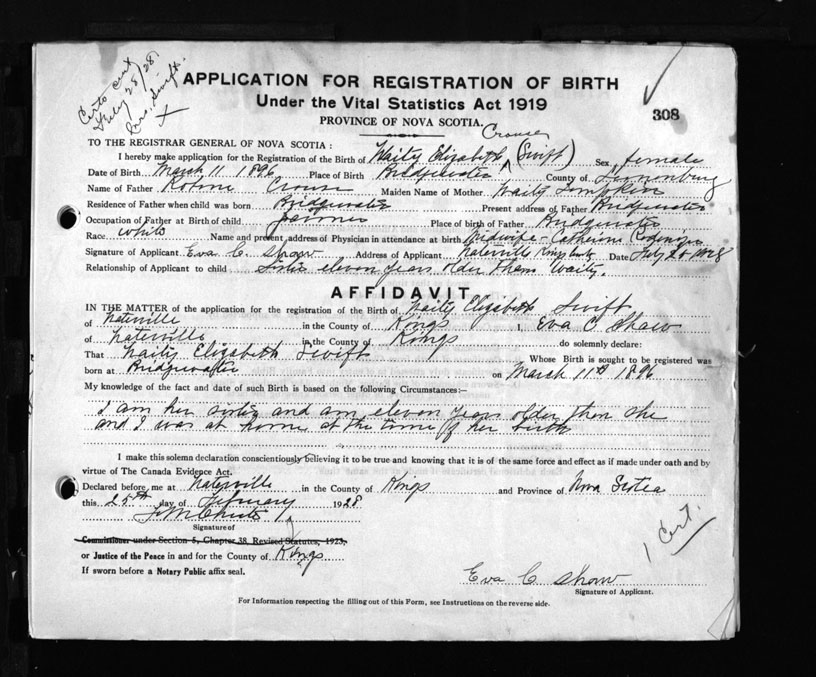 Certo sent
Feby 28/28
Mrs. Swift.
X
APPLICATION FOR REGISTRATION OF BIRTH
Under the Vital Statistics Act 1919
308
PROVINCE OF NOVA SCOTIA.
TO THE REGISTRAR GENERAL OF NOVA SCOTIA :
Crouse
I hereby make application for the Registration of the Birth of Waity Elizabeth (Swift) Sex female
Date of Birth March 11 1896 Place of Birth Bridgewater County of Lunenburg
Name of Father Crouse Maiden Name of Mother Waity
Residence of Father when child was born Bridgewater Present address of Father Bridgewater
Occupation of Father at Birth of child Place of Birth of Father Bridgewater
Race white Name and present address of Physician in attendance at birth Midwife - Catherine
Signature of Applicant Eva C. Shaw Address of Applicant Waterville Kings Date 1928
Relationship of Applicant to child Sister eleven years older than Waity.
AFFIDAVIT
IN THE MATTER of the application for the registration of the Birth of Waity Elizabeth Swift
of Waterville in the County of Kings I, Eva C Shaw
of Waterville in the County of Kings do solemnly declare:
That Waity Elizabeth Swift Whose Birth is sought to be registered was
born at Bridgewater on March 11th 1896
My knowledge of the fact and date of such Birth is based on the following Circumstances:—
I am her sister and am eleven years older than she
and I was at home at the time of her birth
I make this solemn declaration conscientiously believing it to be true and knowing that it is of the same force and effect as if made under oath and by
virtue of The Canada Evidence Act.
Declared before me at Waterville in the County of Kings and Province of Nova Scotia
this 25th day of February 1928
Signature of
Commissioner under Section 5, Chapter 38, Revised Statutes, 1923,
or Justice of the Peace in and for the County of Kings
If sworn before a Notary Public affix seal.
1 Cert.
Eva C Shaw
Signature of Applicant.
For Information respecting the filling out of this Form, see Instructions on the reverse side.